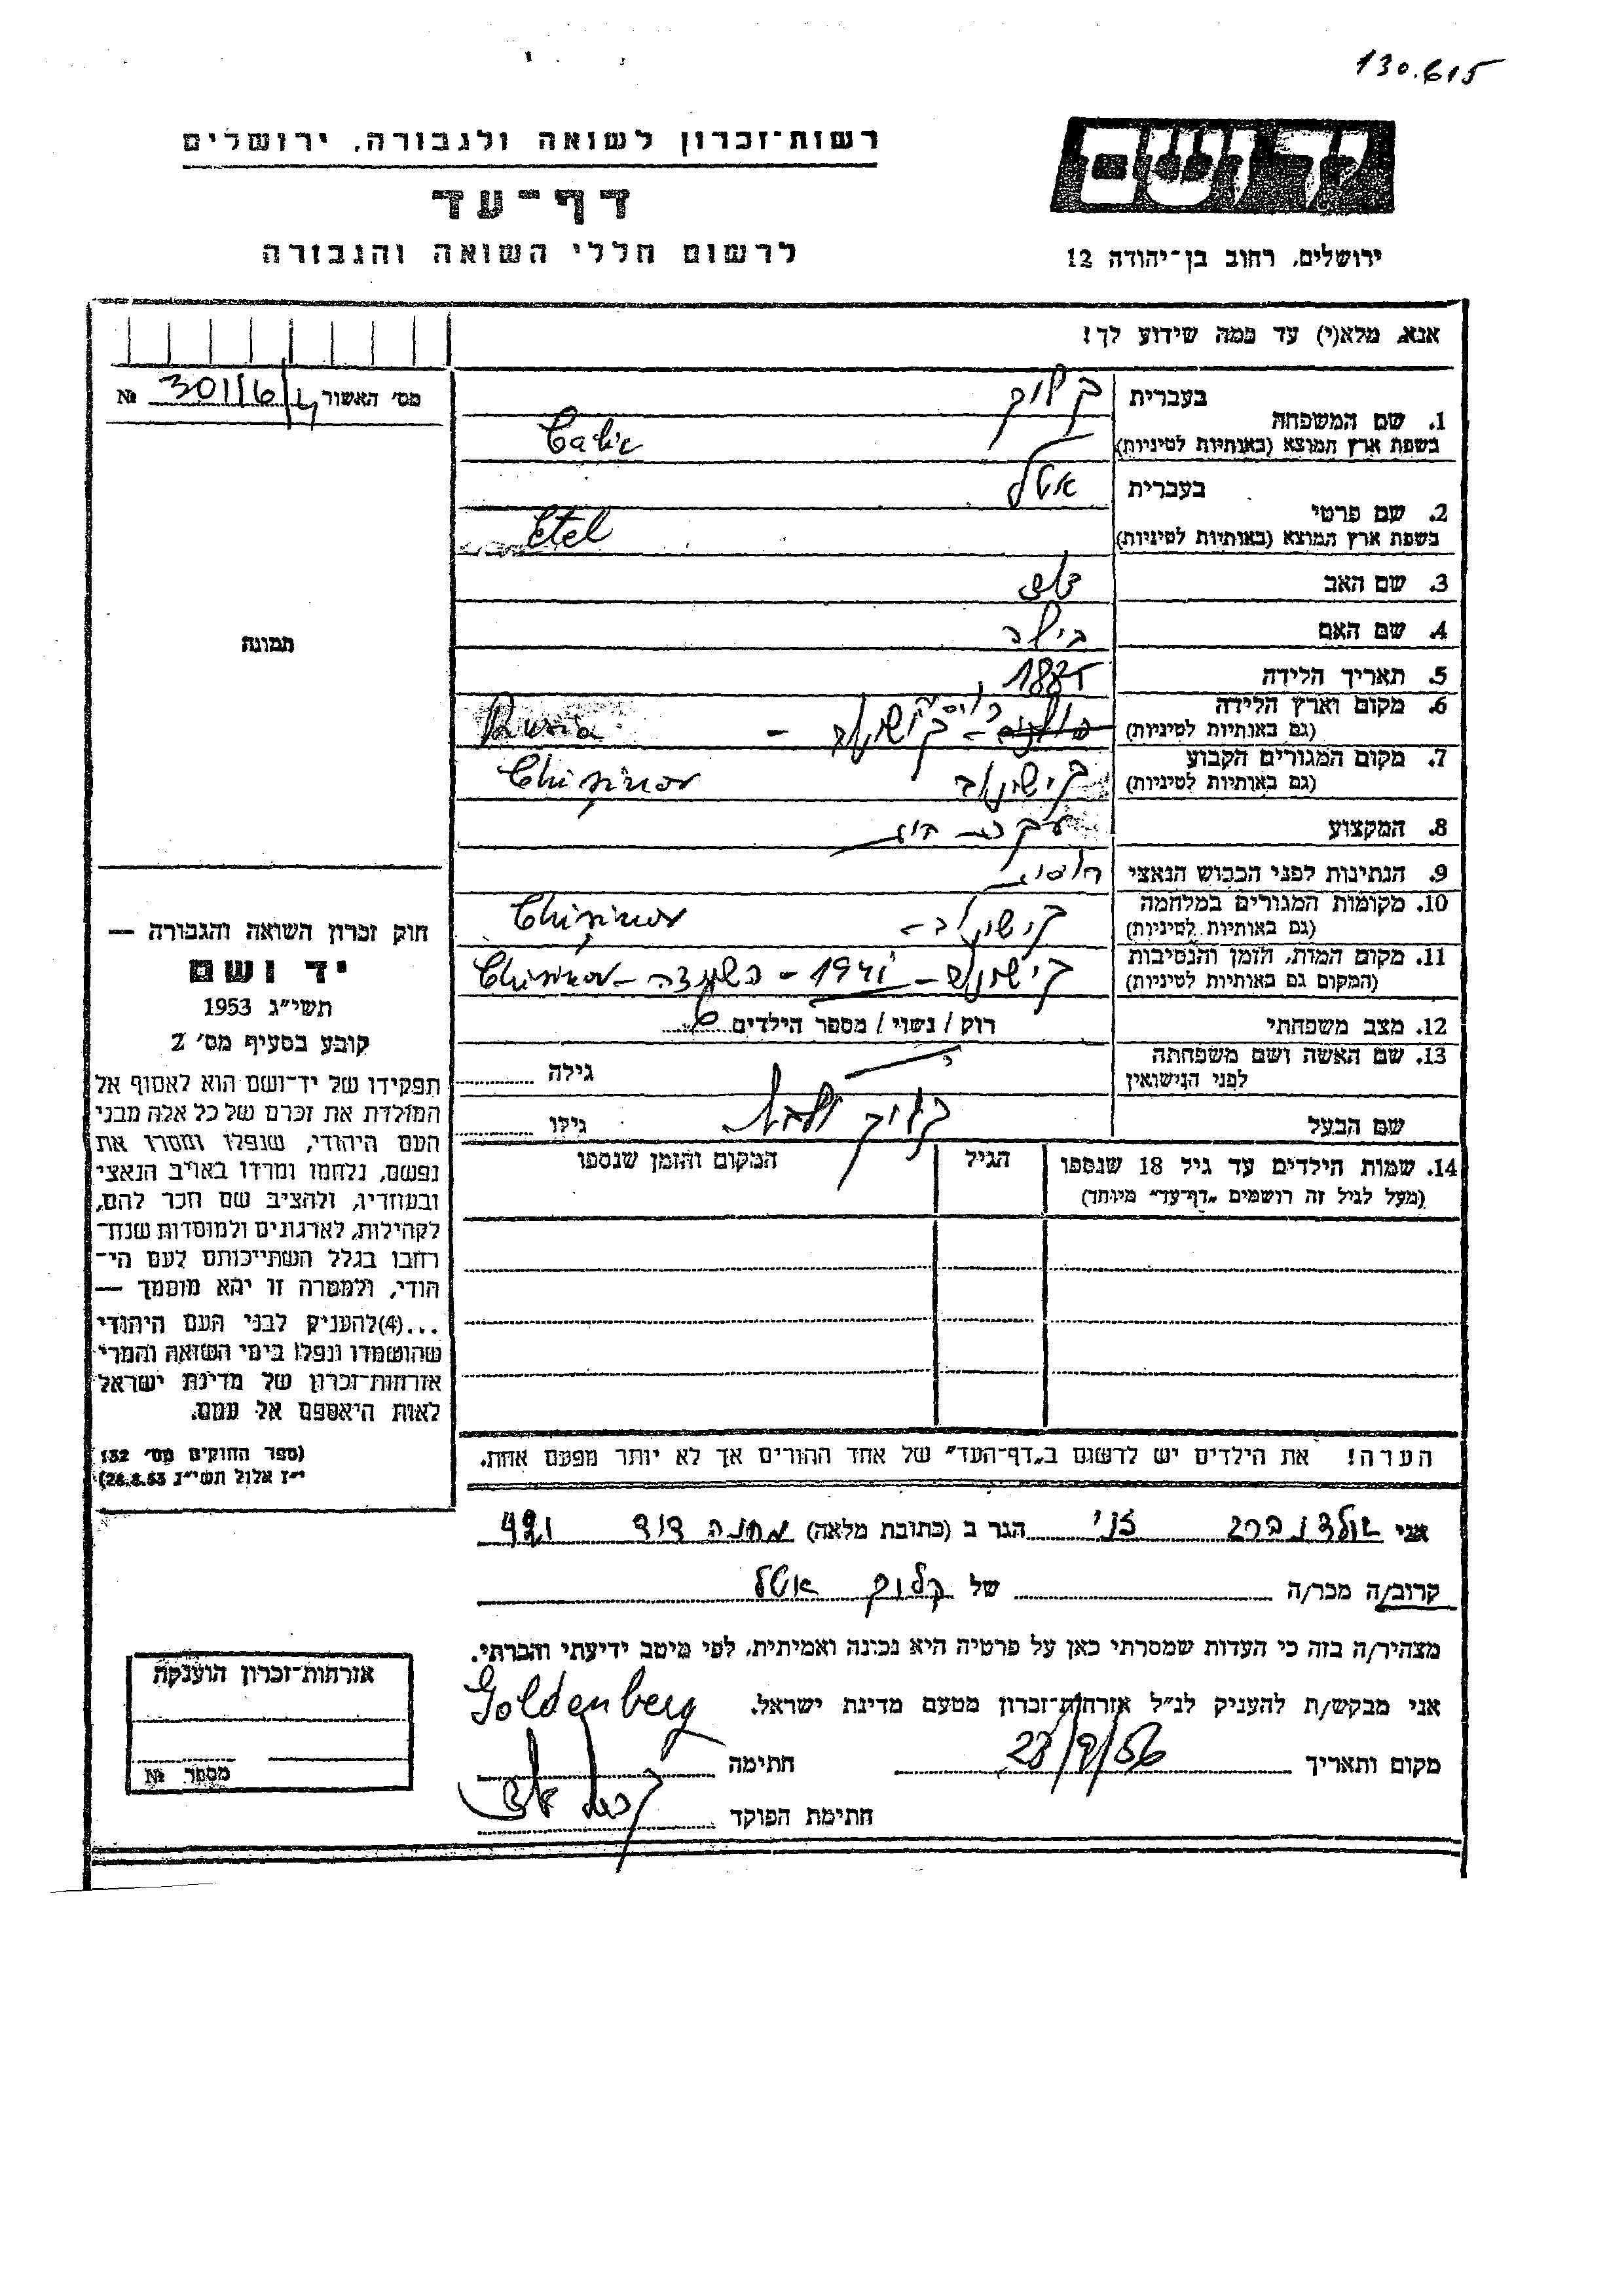 130.615
רשות־זכרון לשואה ולגבורה, ירושלים
דף־עד
לרשום חללי השואה והגבורה
יד ושם
ירושלים, רחוב בן־יהודה 12
אנא, מלא(י) עד כמה שידוע לך!
מס' האשור № 301/6/
1. שם המשפחה
בעברית
בשפת ארץ המוצא (באותיות לטיניות)
2. שם פרטי
בעברית אטל
בשפת ארץ המוצא (באותיות לטיניות) Etel
3. שם האב
4. שם האם
5. תאריך הלידה 1885
6. מקום וארץ הלידה
(גם באותיות לטיניות) Rusia
7. מקום המגורים הקבוע קישינוב
(גם באותיות לטיניות) Chişinov
8. המקצוע עקרת בית
9. הנתינות לפני הכבוש הנאצי רוסית
10. מקומות המגורים במלחמה קישינוב -
(גם באותיות לטיניות) Chişinov
11. מקום המות, הזמן והנסיבות קישינוב - 1941 - השמדה -
(המקום גם באותיות לטיניות) Chişinov
12. מצב משפחתי רוק / נשוי / מספר הילדים 6
13. שם האשה ושם משפחתה
לפני הנישואין גילה
שם הבעל גילו
14. שמות הילדים עד גיל 18 שנספו הגיל המקום והזמן שנספו
(מעל לגיל זה רושמים "דף־עד" מיוחד)
הערה! את הילדים יש לרשום ב"דף־העד" של אחד ההורים אך לא יותר מפעם אחת.
תמונה
חוק זכרון השואה והגבורה —
יד ושם
תשי"ג 1953
קובע בסעיף מס' 2
תפקידו של יד־ושם הוא לאסוף אל
המולדת את זכרם של כל אלה מבני
העם היהודי, שנפלו ומסרו את
נפשם, נלחמו ומרדו באויב הנאצי
ובעוזריו, ולהציב שם וזכר להם,
לקהילות, לארגונים ולמוסדות שנח־
רחבו בגלל השתייכותם לעם הי־
הודי, ולמטרה זו יהא מוסמך —
...(4)להעניק לבני העם היהודי
שהושמדו ונפלו בימי השואה והמרי
אזרחות־זכרון של מדינת ישראל
לאות היאספם אל עמם.
(ספר החוקים מס' 132
י"ז אלול תשי"ג, 28.8.53)
אני גולדנברג זני הגר ב (כתובת מלאה) מחנה דוד 421
קרוב/ה מכר/ה של קלוק אטל
מצהיר/ה בזה כי העדות שמסרתי כאן על פרטיה היא נכונה ואמיתית, לפי מיטב ידיעתי והכרתי.
אני מבקש/ת להעניק לנ"ל אזרחות־זכרון מטעם מדינת ישראל.
מקום ותאריך 23/9/56 חתימה Goldenberg
חתימת הפוקד
אזרחות־זכרון הוענקה
מספר №